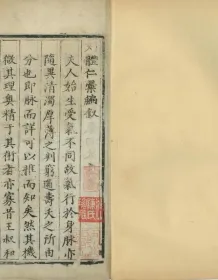 體仁彙編敘
夫人始生受氣不同故氣行於身脉亦
隨異清濁厚薄之列窮通壽夭之所由
分也即脉而詳可以推而知矣然其機
微其理奧精于其術者亦寡昔王叔和